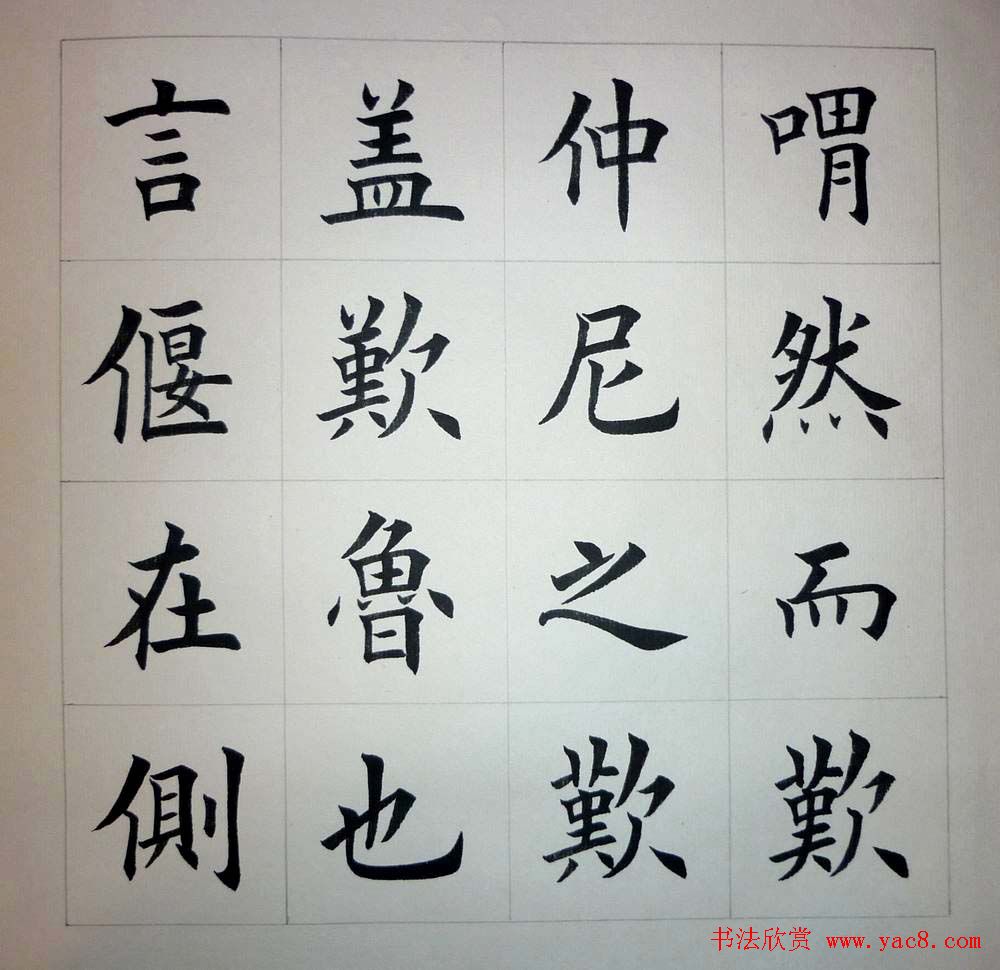 喟然而歎
仲尼之歎
盖歎魯也
言偃在側
书法欣赏 www.yac8.com